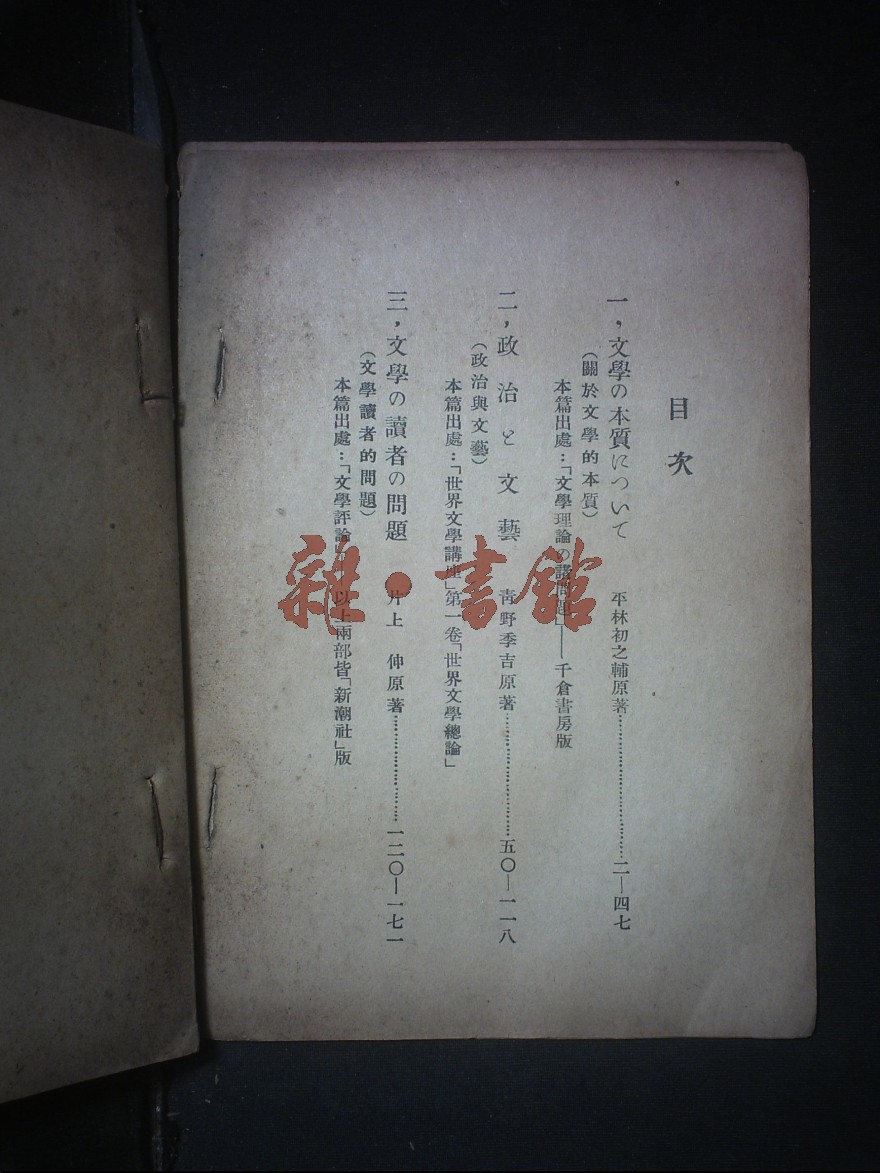 目次
一，文學の本質について 平林初之輔原著……二—四七
（關於文學的本質）
本篇出處：「文學理論の諸問題」——千倉書房版
二，政治と文藝 靑野季吉原著……五〇—一一八
（政治與文藝）
本篇出處：「世界文學講座」第一卷「世界文學總論」
三，文學の讀者の問題 片上 伸原著……一二〇—一七一
（文學讀者的問題）
本篇出處：「文學評論」 以上兩部皆「新潮社」版
雜·書館